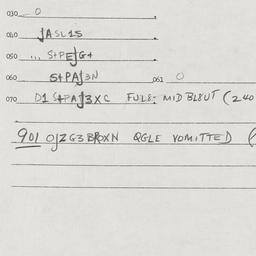 030 O
040 JASL15
050 ... S+PEJG+
060 S+PAJ3N 061 O
070 D1 S+PAJ3XC FUL8: MID BL8UT (240
901 OJZG3 BROXN QGLE VOMITTED (